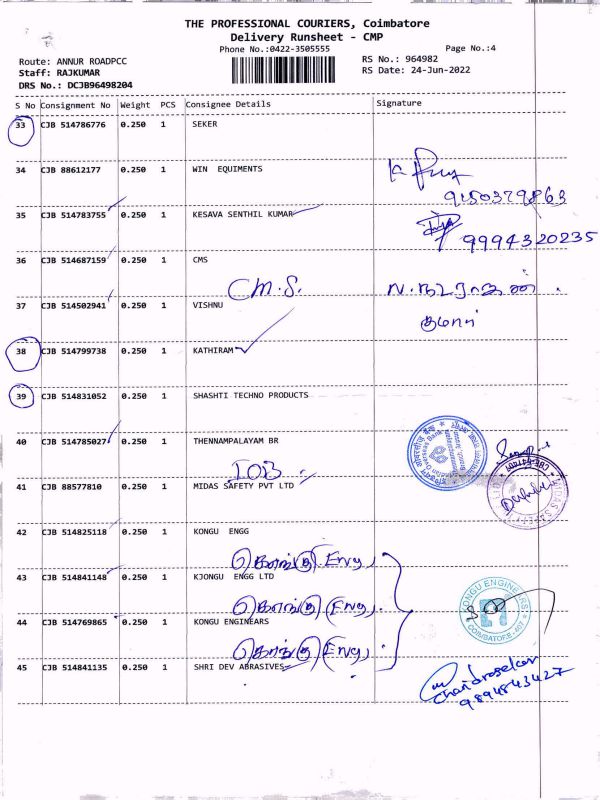 THE PROFESSIONAL COURIERS, Coimbatore
Delivery Runsheet - CMP
Phone No.:0422-3505555
Page No.:4
Route: ANNUR ROADPCC
RS No.: 964982
Staff: RAJKUMAR
RS Date: 24-Jun-2022
DRS No.: DCJB96498204
S No Consignment No Weight PCS Consignee Details Signature
33 CJB 514786776 0.250 1 SEKER
34 CJB 88612177 0.250 1 WIN EQUIMENTS
9150379863
35 CJB 514783755 0.250 1 KESAVA SENTHIL KUMAR
9994320235
36 CJB 514687159 0.250 1 CMS
C M. S.
37 CJB 514502941 0.250 1 VISHNU
38 CJB 514799738 0.250 1 KATHIRAM
39 CJB 514831052 0.250 1 SHASHTI TECHNO PRODUCTS
40 CJB 514785027 0.250 1 THENNAMPALAYAM BR
IOB
41 CJB 88577810 0.250 1 MIDAS SAFETY PVT LTD
42 CJB 514825118 0.250 1 KONGU ENGG
கொங்கு Eng
43 CJB 514841148 0.250 1 KJONGU ENGG LTD
கொங்கு Eng
KONGU ENGINEERS
COIMBATORE
44 CJB 514769865 0.250 1 KONGU ENGINEARS
கொங்கு Eng
45 CJB 514841135 0.250 1 SHRI DEV ABRASIVES
Chandrasekar
9894843427